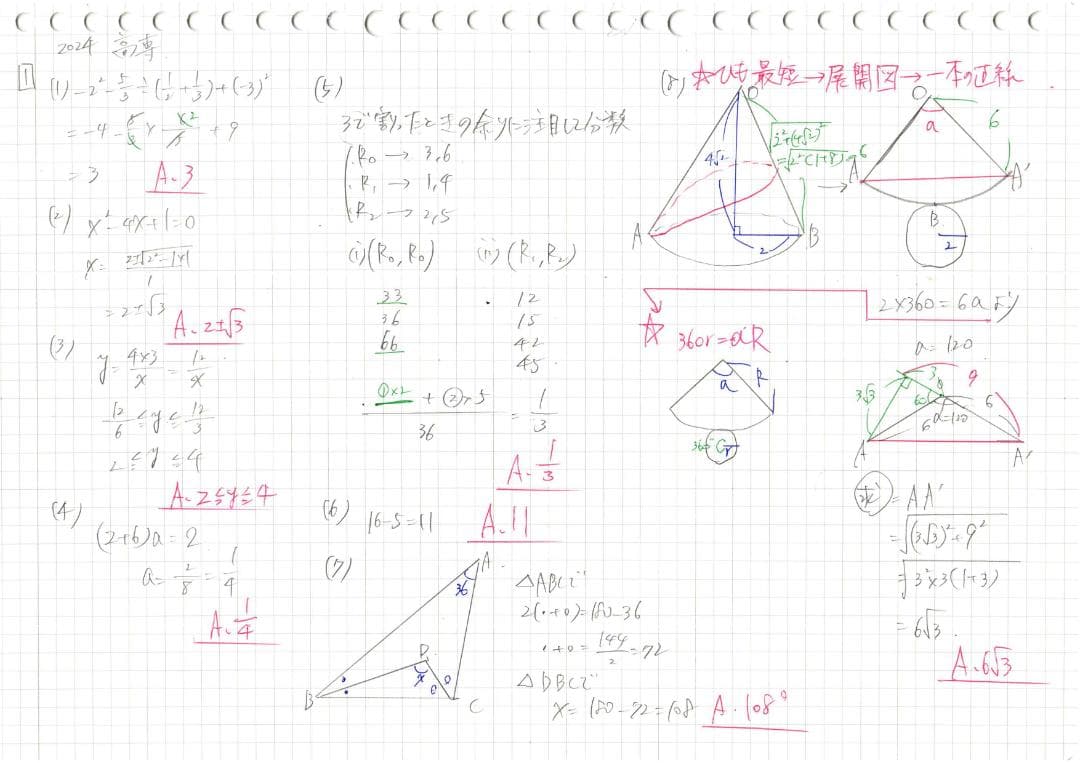 2024 高専
1
(1) -2² - 5/3 ÷ (1/2 + 1/3) + (-3)²
= -4 - 5/3 × 6×2/5 + 9
= 3
A. 3
(2) x² - 4x + 1 = 0
x = 2±√2²-1×1 / 1
= 2±√3
A. 2±√3
(3)
y = 4×3/x = 12/x
12/6 ≦ y ≦ 12/3
2 ≦ y ≦ 4
A. 2≦y≦4
(4)
(2+6)a = 2
a = 2/8 = 1/4
A. 1/4
(5)
3で割ったときの余りに注目して分類
R₀ → 3,6
R₁ → 1,4
R₂ → 2,5
(i)(R₀,R₀) (ii)(R₁,R₂)
33 12
36 15
66 42
45
①×2 + ②×5 / 36 = 1/3
A. 1/3
(6)
16-5=11
A. 11
(7)
A
36
D
x
B
C
△ABCで
2(・+○)=180-36
・+○=144/2=72
△DBCで
x=180-72=108
A. 108°
(8) ☆ひも最短→展開図→一本の正線
O
4√2
√2²+(4√2)²
=√2²(1+8)=6
A
2
B
→
O
a
6
A
A'
B
2
2×360=6aより
a=120
☆ 360r=aR
a
R
360°
r
3
9
3√3
60
6
6
a=120
A
A'
求 = AA'
=√(3√3)²+9²
=√3²×3(1+3)
=6√3
A. 6√3